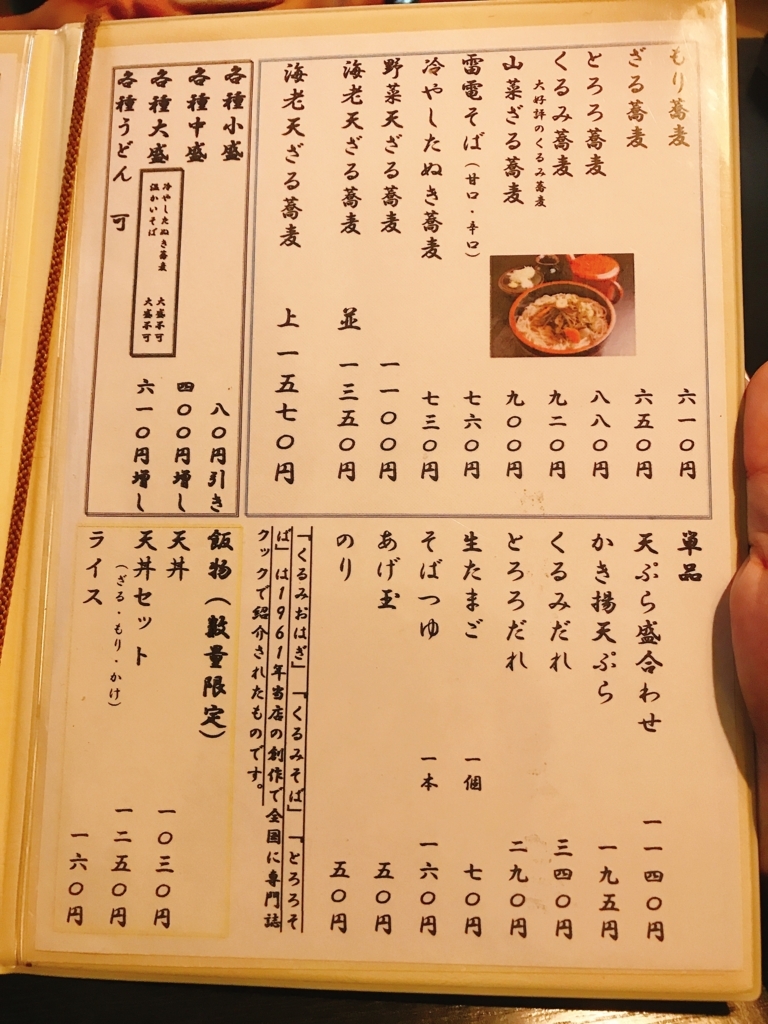 もり蕎麦 六一〇円
ざる蕎麦 六五〇円
とろろ蕎麦 八八〇円
くるみ蕎麦 九二〇円
大好評のくるみ蕎麦
山菜ざる蕎麦 九〇〇円
雷電そば（甘口・辛口） 七六〇円
冷やしたぬき蕎麦 七三〇円
野菜天ざる蕎麦 一一〇〇円
海老天ざる蕎麦 並 一三五〇円
海老天ざる蕎麦 上 一五七〇円
各種小盛 八〇円引き
各種中盛 四〇〇円増し
各種大盛 六一〇円増し
冷やしたぬき蕎麦 大盛不可
温かいそば 大盛不可
各種うどん 可
単品
天ぷら盛合わせ 一一四〇円
かき揚天ぷら 一九五円
くるみだれ 三四〇円
とろろだれ 二九〇円
生たまご 一個 七〇円
そばつゆ 一本 一六〇円
あげ玉 五〇円
のり 五〇円
「くるみおはぎ」「くるみそば」「とろろそ
ば」は1961年当店の創作で全国に専門誌
クックで紹介されたものです。
飯物（数量限定）
天丼 一〇三〇円
天丼セット 一二五〇円
（ざる・もり・かけ）
ライス 一六〇円